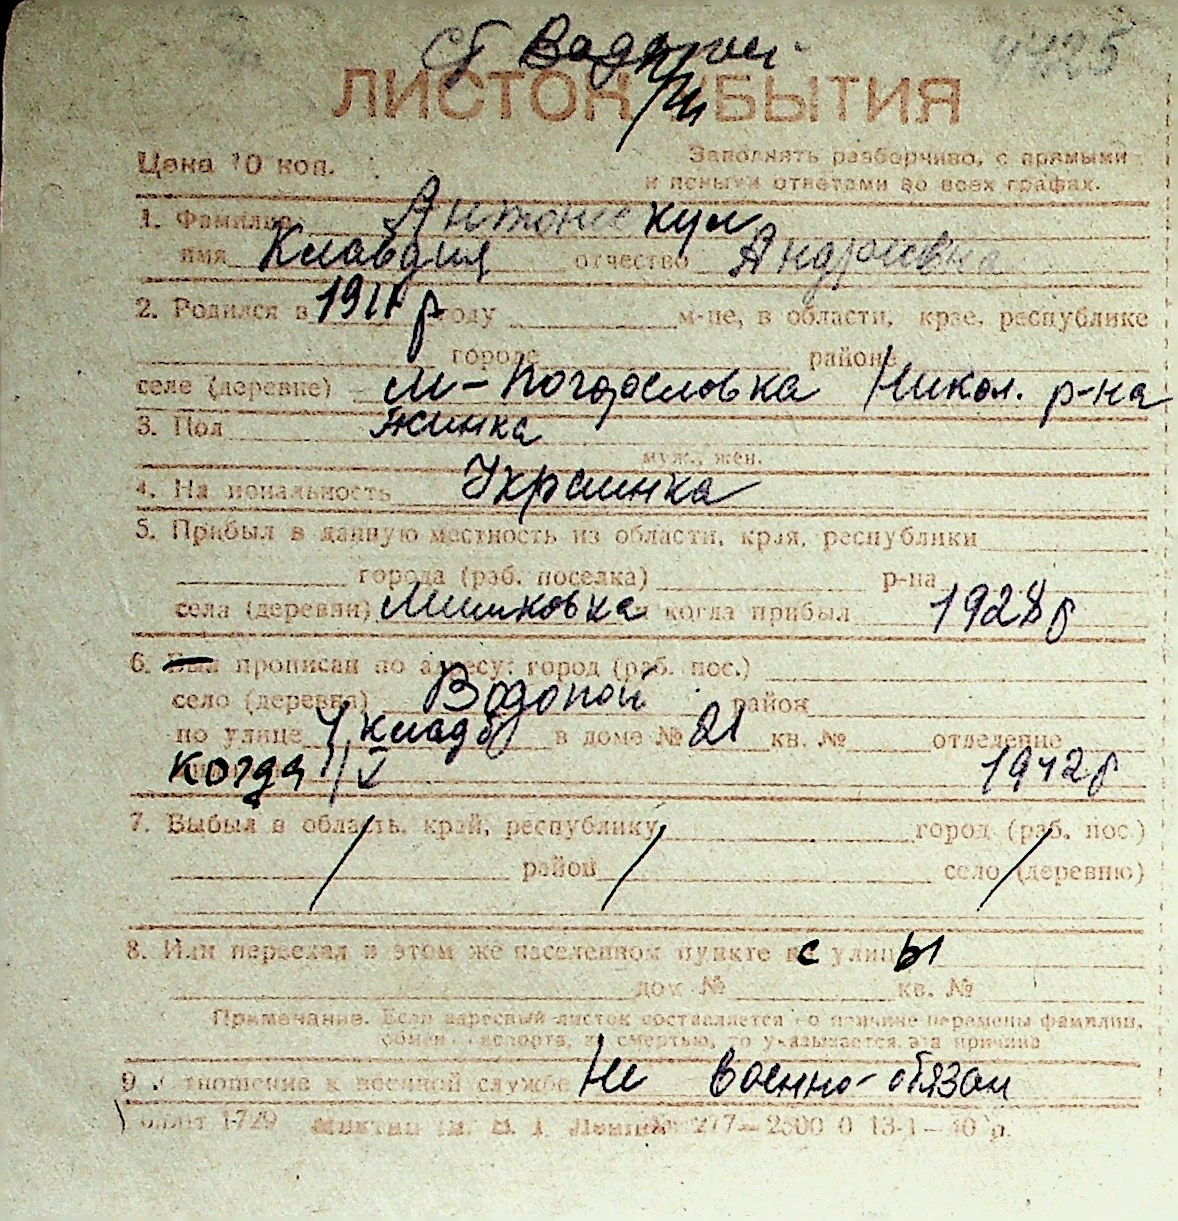 ст Водопой 4725
ЛИСТОК ПРИБЫТИЯ
Цена 10 коп. Заполнять разборчиво, с прямыми
и ясными ответами во всех графах.
1. Фамилия
имя Клавдия отчество Андреевна
2. Родился в 1911 р году м-це, в области, крае, республике
городе районе
селе (деревне) м- Погорословка Никол. р-на
3. Пол Жинка
муж., жен.
4. Национальность Украинка
5. Прибыл в данную местность из области, края, республики
города (раб. поселка) р-на
села (деревни) Мишковка когда прибыл 1928 р
6. Был прописан по адресу: город (раб. пос.)
село (деревня) Водопой район
по улице в доме № 21 кв. № отделение
когда 1942 р
7. Выбыл в область, край, республику город (раб. пос.)
район село (деревню)
8. Или переехал в этом же населенном пункте с улицы
дом № кв. №
Примечание. Если адресный листок составляется по причине перемены фамилии,
обмена паспорта, за смертью, то указывается эта причина
9. Отношение к военной службе Не военно-обязан
1-729 277—2500 0 13-1—40 р.